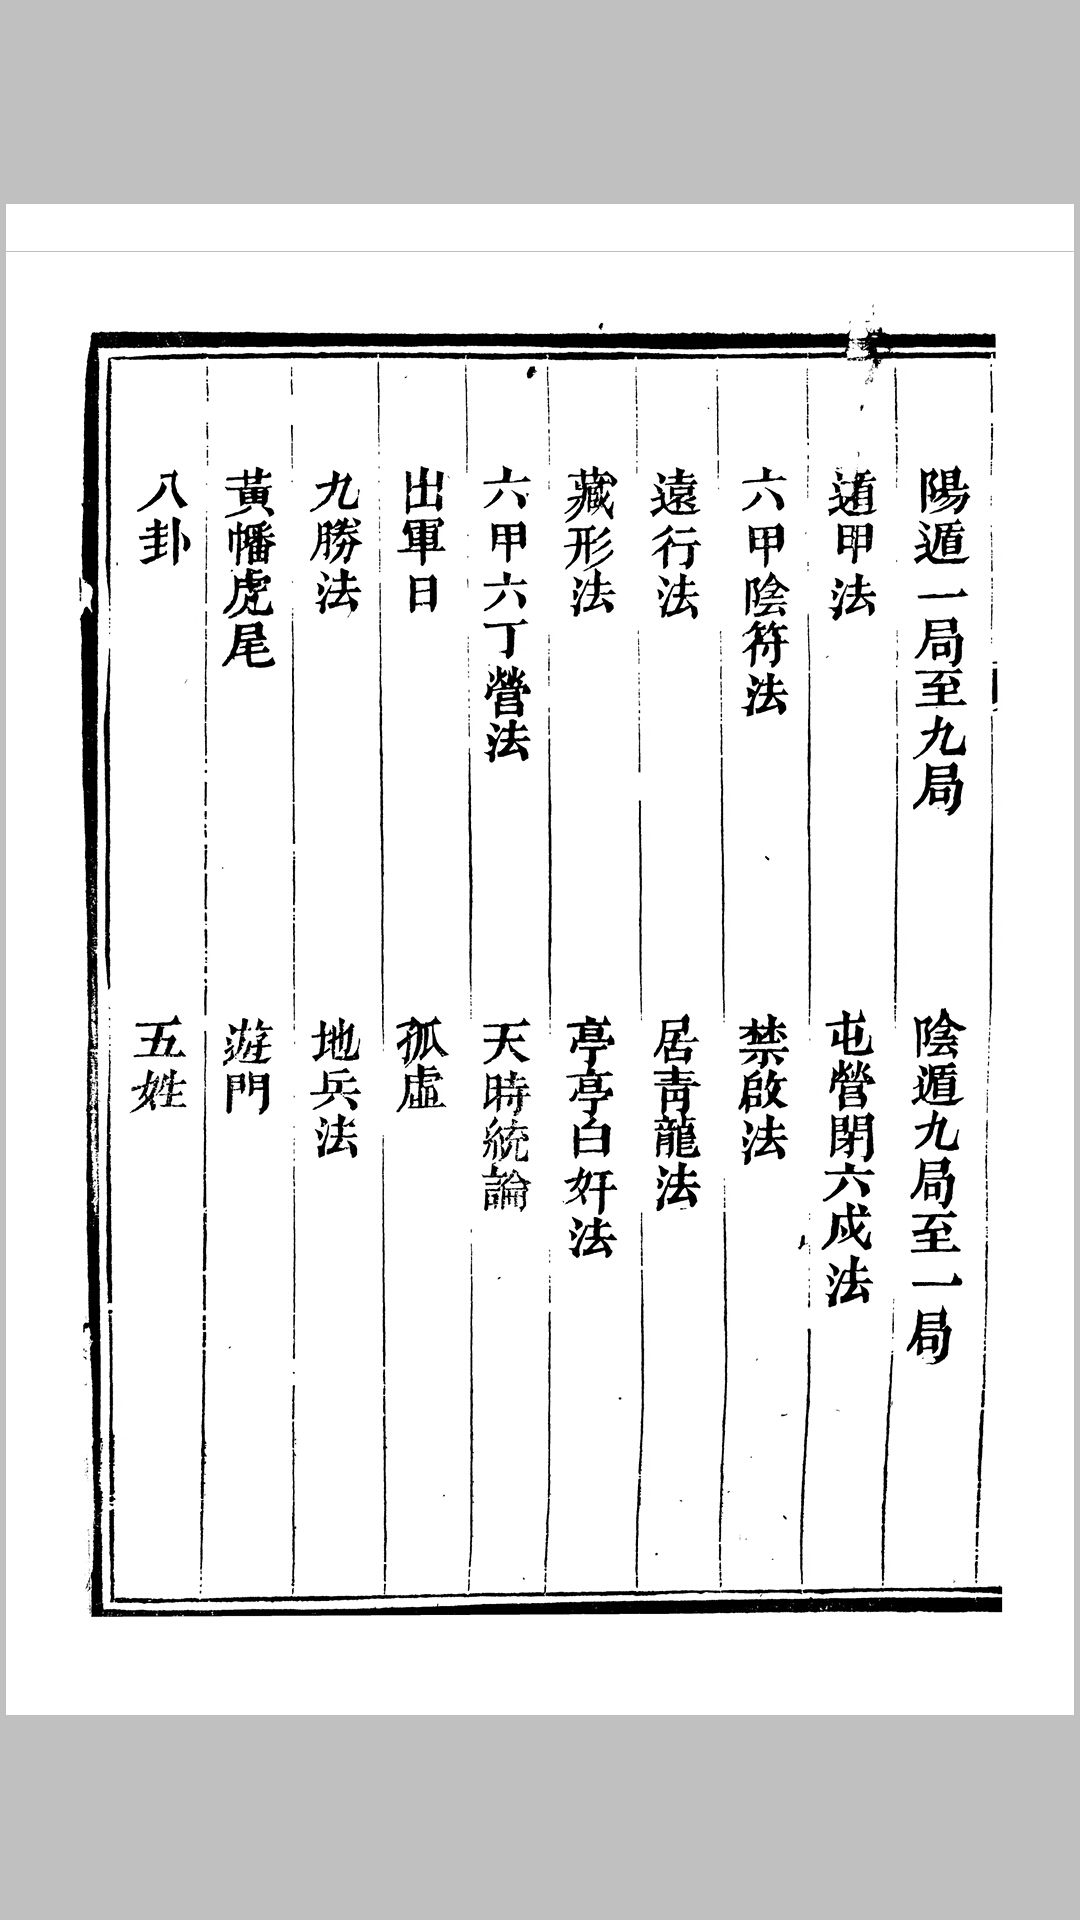 陽遁一局至九局　陰遁九局至一局
遁甲法　屯營閉六戍法
六甲陰符法　禁啟法
遠行法　居靑龍法
藏形法　亭亭白奸法
六甲六丁營法　天時統論
出軍日　孤虛
九勝法　地兵法
黃幡虎尾　遊門
八卦　五姓